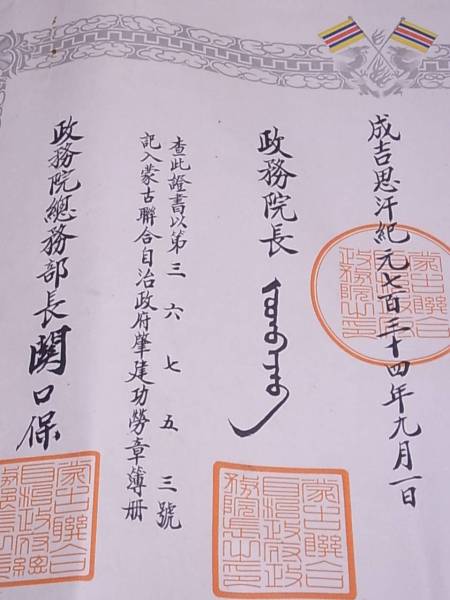 成吉思汗紀元七百三十四年九月一日
蒙古聯合
自治政府
政務院之印
政務院長
蒙古聯合
自治政府政
務院長之印
查此證書以第三六七五三號
記入蒙古聯合自治政府肇建功勞章簿冊
政務院總務部長関口保
蒙古聯合
自治政府總